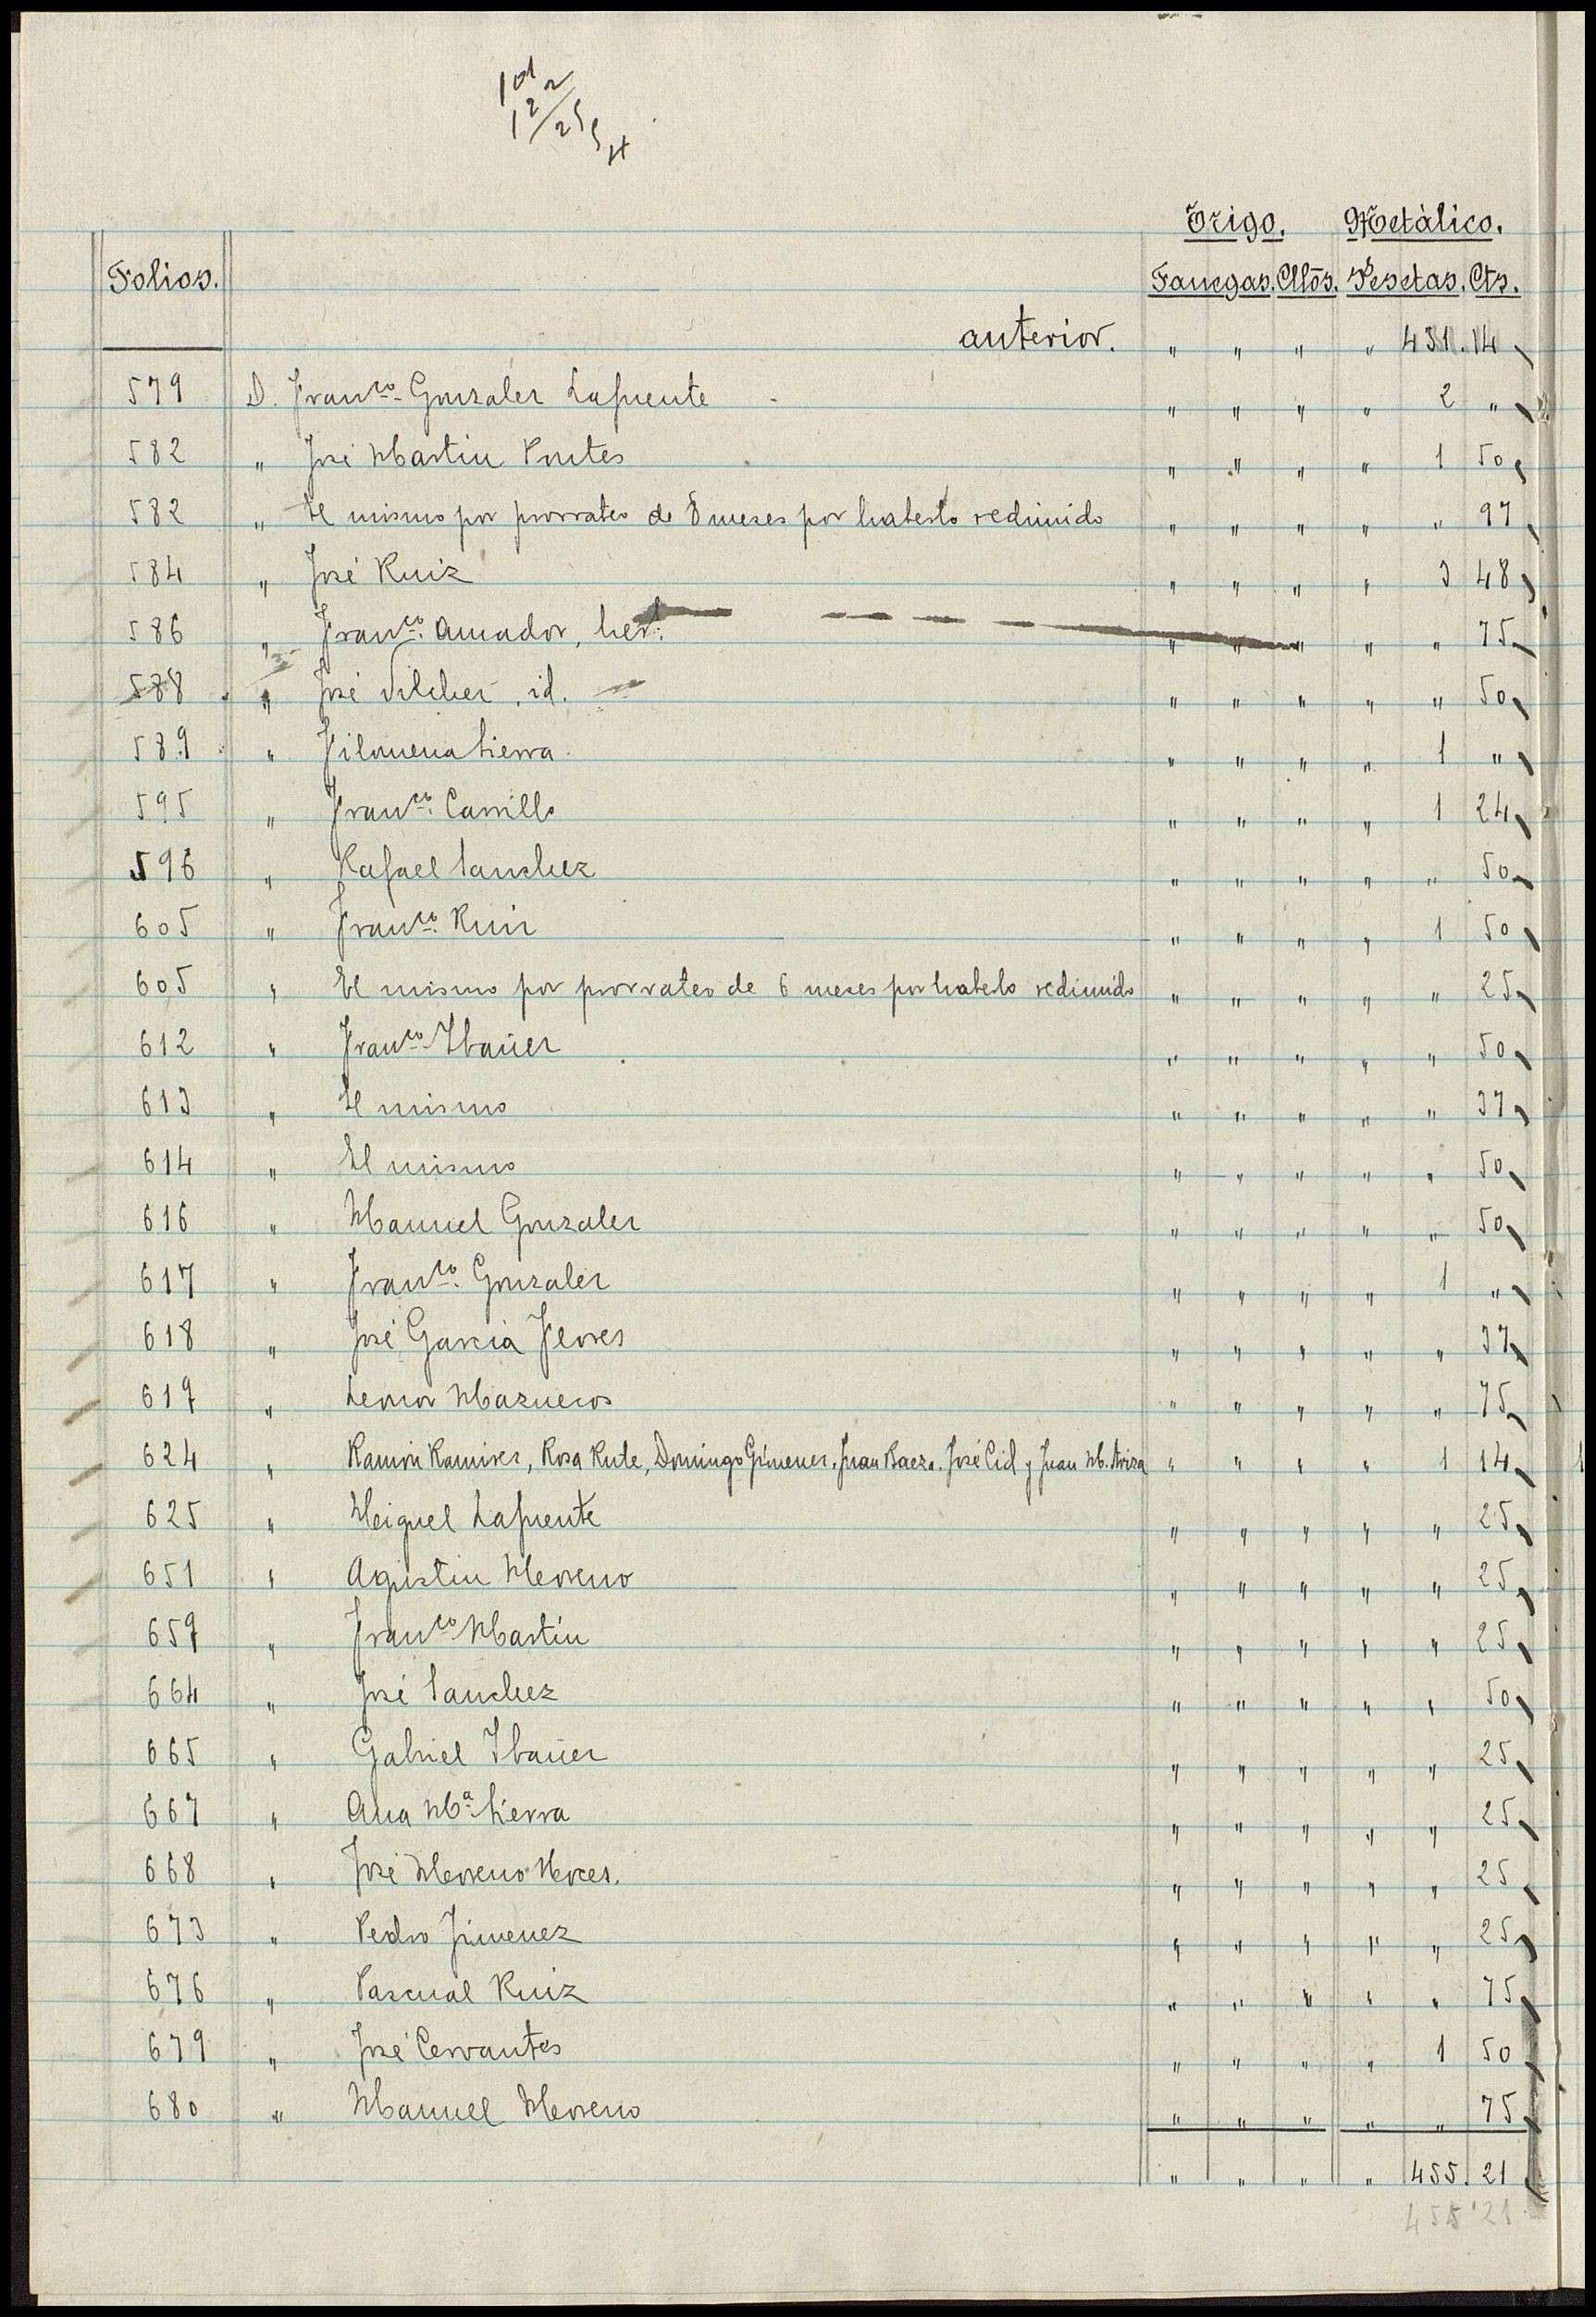 Trigo. Metálico.
Folios. Fanegas. Cllos. Pesetas. Cts.
anterior. " " " " 431.14
579 D. Franco. Gonzalez Lafuente " " " " 2 "
582 " José Martin Puntes " " " " 1 50
582 " El mismo por prorrateo de 8 meses por haberlo redimido " " " " " 97
584 " José Ruiz " " " " 3 48
586 " Franco. Amador, her. " " " " " 75
588 " José Vilchez, id. " " " " " 50
589 " Filomena Sierra " " " " 1 "
595 " Franco. Carrillo " " " " 1 24
596 " Rafael Sanchez " " " " " 50
605 " Franco. Ruiz " " " " 1 50
605 " El mismo por prorrateo de 6 meses por haberlo redimido " " " " " 25
612 " Franco. Ibañez " " " " " 50
613 " El mismo " " " " " 37
614 " El mismo " " " " " 50
616 " Manuel Gonzalez " " " " " 50
617 " Franco. Gonzalez " " " " 1 "
618 " José Garcia Flores " " " " " 37
619 " Leonor Mazuecos " " " " " 75
624 " Ramón Ramirez, Rosa Rute, Domingo Gimenez, Juan Baeza, José Cid y Juan M. Ariza " " " " 1 14
625 " Miguel Lafuente " " " " " 25
651 " Agustin Moreno " " " " " 25
659 " Franco. Martin " " " " " 25
664 " José Sanchez " " " " " 50
665 " Gabriel Ibañez " " " " " 25
667 " Ana Ma. Sierra " " " " " 25
668 " José Moreno " " " " " 25
673 " Pedro Jimenez " " " " " 25
676 " Pascual Ruiz " " " " " 75
679 " José Cervantes " " " " 1 50
680 " Manuel Moreno " " " " " 75
" " " " 455.21
455'21